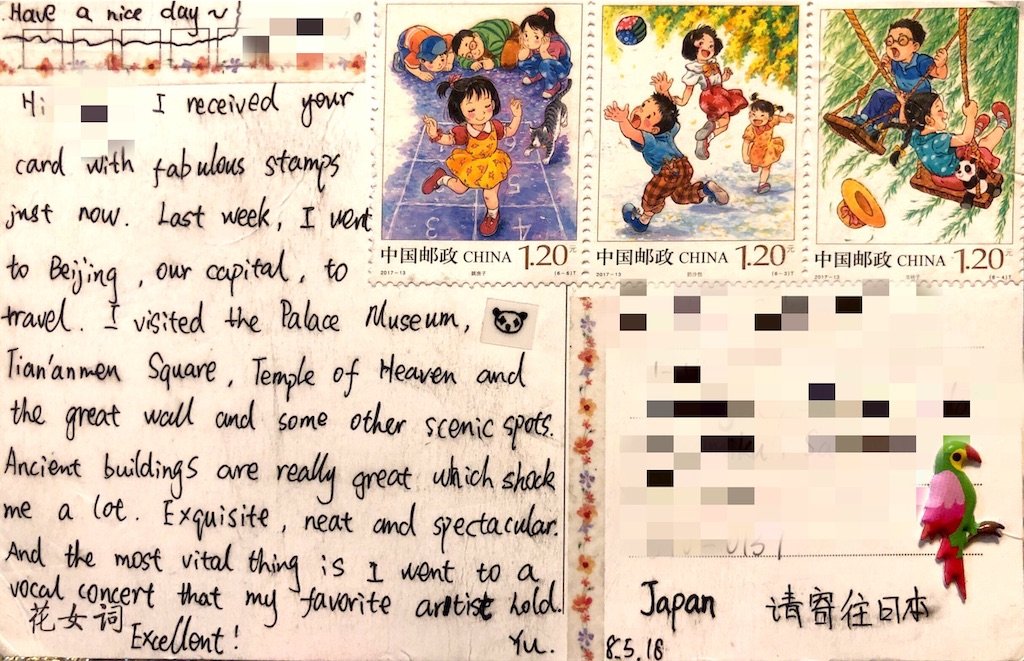 Have a nice day~
Hi I received your
card with fabulous stamps
just now. Last week, I went
to Beijing, our capital, to
travel. I visited the Palace Museum,
Tian'anmen Square, Temple of Heaven and
the great wall and some other scenic spots.
Ancient buildings are really great which shock
me a lot. Exquisite, neat and spectacular.
And the most vital thing is I went to a
vocal concert that my favorite artist hold.
花女词 Excellent! Yu.
中国邮政 CHINA 1.20元
2017-13 (6-6)T
中国邮政 CHINA 1.20元
2017-13 (6-3)T
中国邮政 CHINA 1.20元
2017-13 (6-4)T
3
Japan 请寄往日本
8.5.18